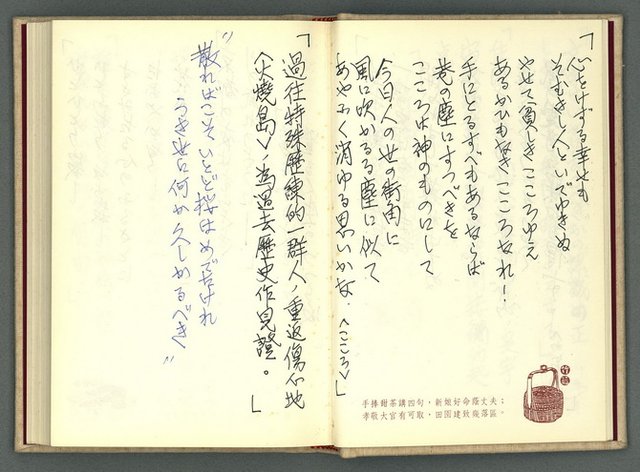 「心をけずる幸せも
そむきし人といでゆきぬ
やせて貧しきこころゆえ
あるかひもなきこころなれ！
手にとるすべもあるならば
巷の塵にすつべきを
こころは神のものにして
今日人の世の街角に
風に吹かるる塵に似て
あやふく消ゆる思いかな 〈こころ〉」
手捧甜茶講四句，新娘好命蔭丈夫；
孝敬大官有可取，田園建致與落區。
「過往特殊歷練的一群人，重返傷心地
〈火燒島〉，為過去歷史作見證。」
"散ればこそいとど桜はめでたけれ
うき世に何か久しかるべき"